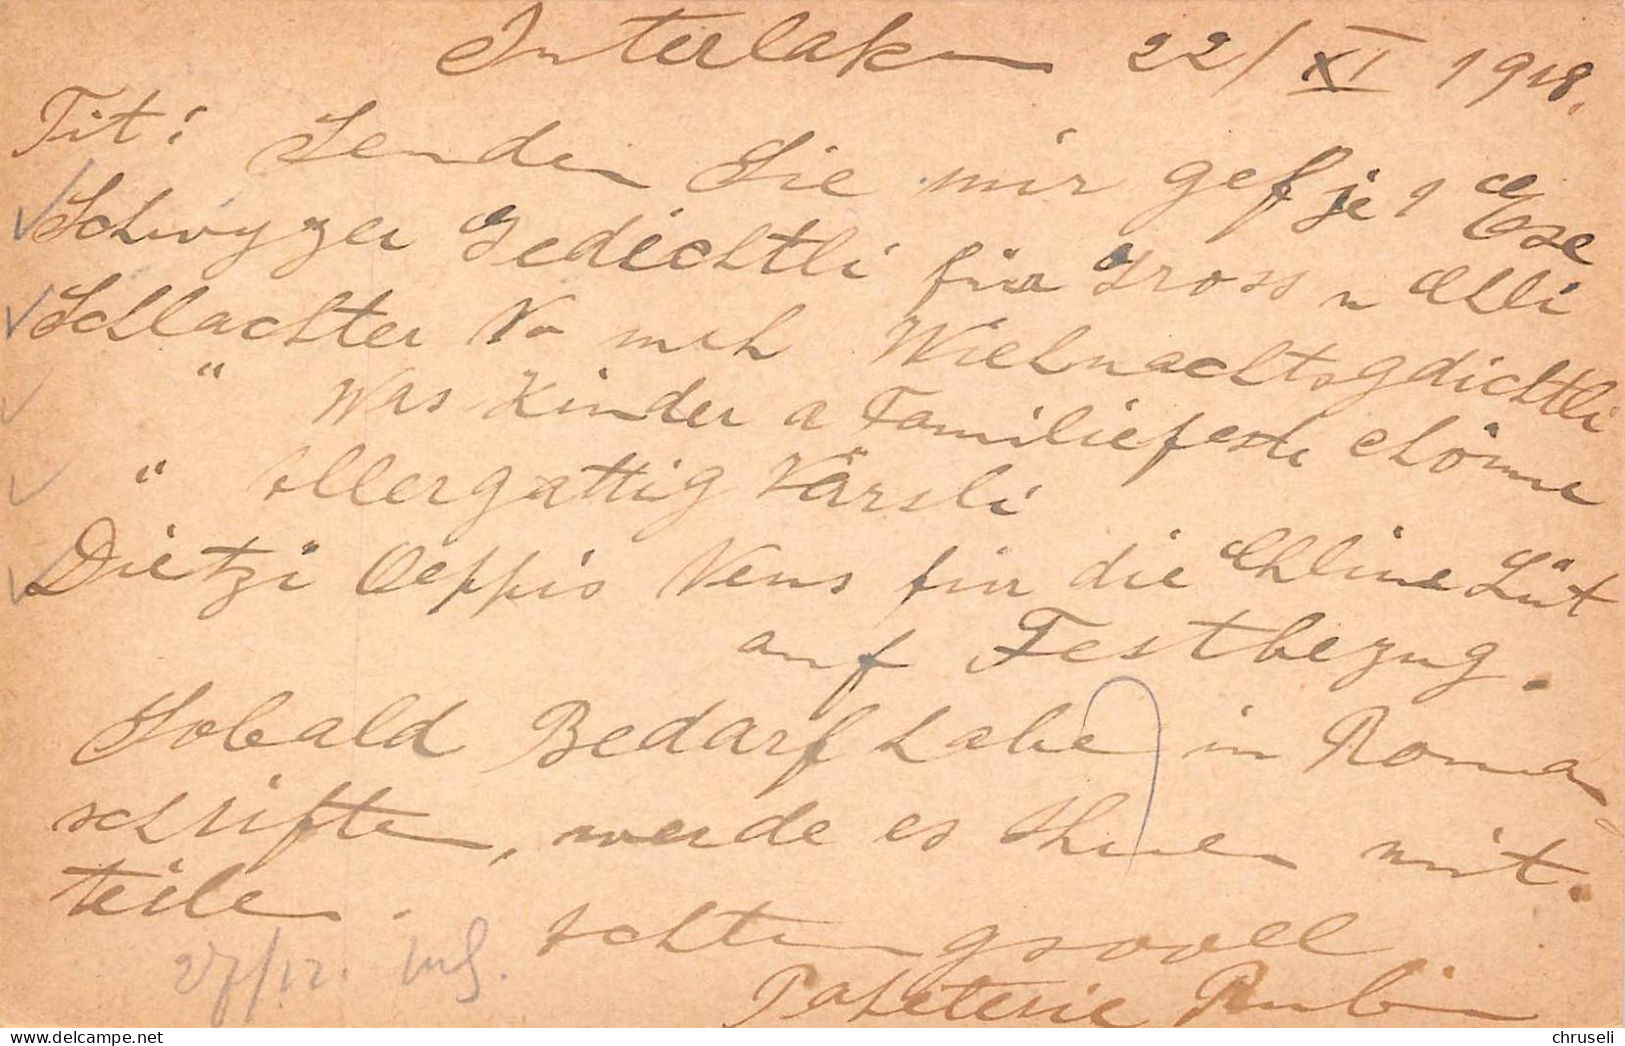 Interlaken 22/XI 1918.
Tit: Senden Sie mir gef je 1 Exe
Schwyzer Gedichtli für Gross u Chli
Schlachter No meh Wiehnachtsgdichtli
" Was Kinder a Familiefeste chönne
" Allergattig Värsli
Dietzi Oeppis Neus für die Chline Lüt
auf Festbezug.
Sobald Bedarf habe in Roman
schriften, werde es Ihnen mit-
teilen.
Achtungsvoll
27/12.
Papeterie Rubin
chruseli